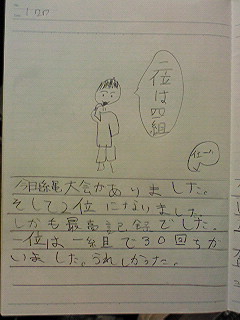 二位は四組
今日縄大会がありました。
そして2位になりました
しかも最高記録でした。
一位は一組で30回ちが
いました。うれしかった。